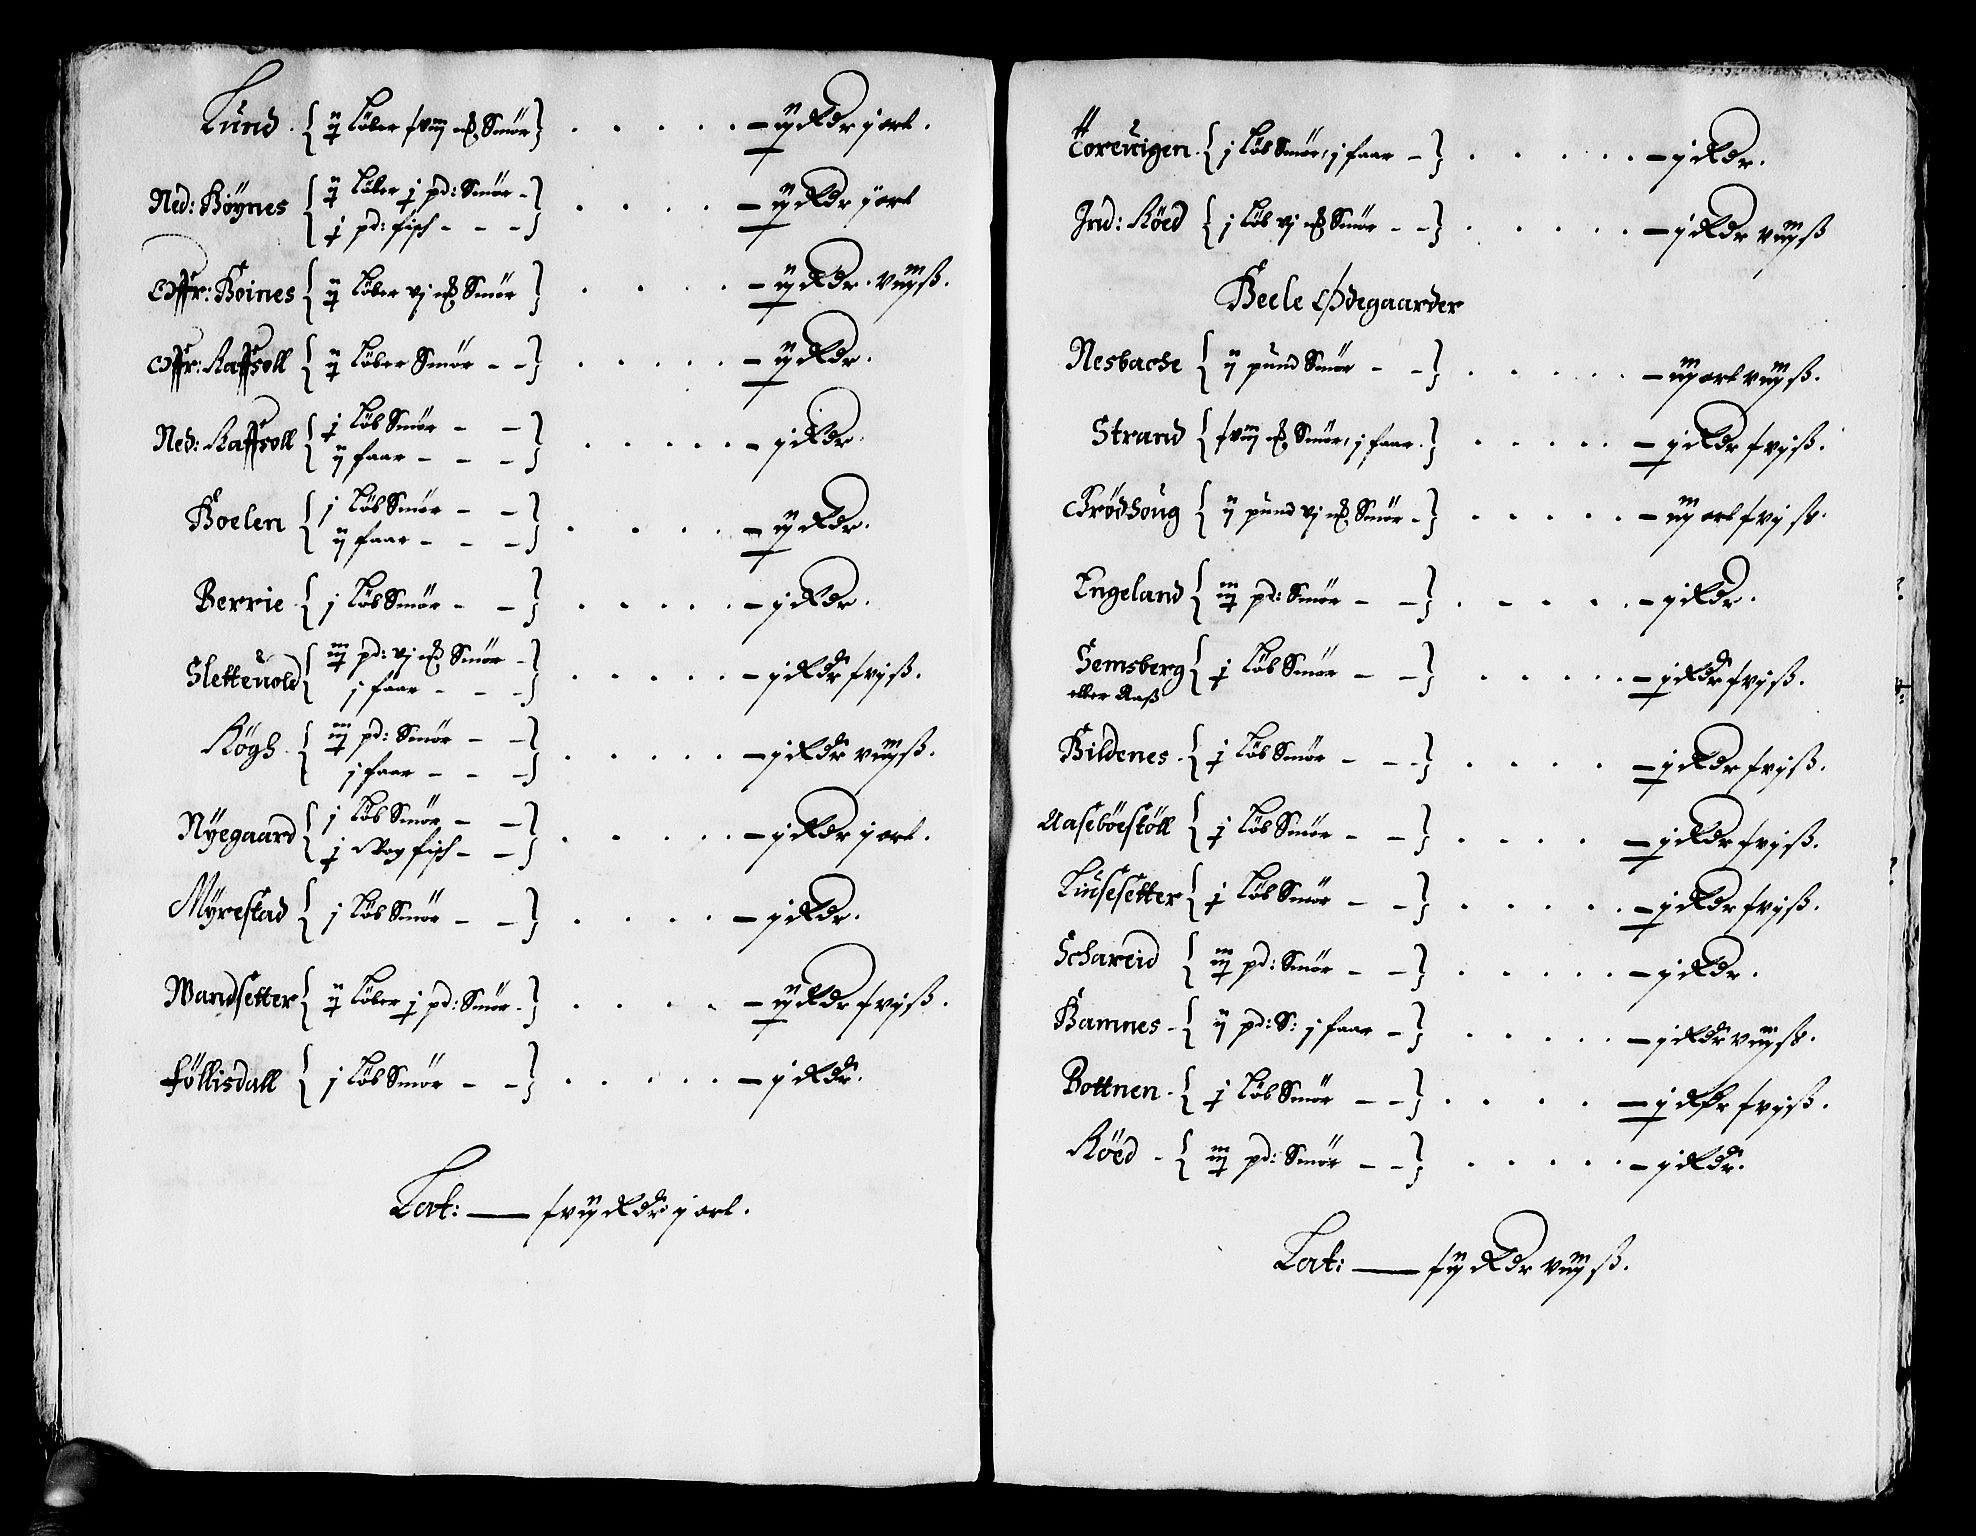 Lund. { ij Løber xviij mk Smør } . . . . . — ij Rdr j ort.
Ned: Bøynes { ij Løber j pd: Smør - j pd: fisch - - - } . . . . — ij Rdr j ort
Offr: Boines { ij Løber vj mk Smør } . . . . — ij Rdr. viij ß.
Offr: Raffsoll { ij Løber Smør - - } . . . . . — ij Rdr.
Ned: Raffsoll { j Løb Smør - - ij faar - - - } . . . . . — j Rdr.
Boelen { j Løb Smør - - ij faar - - - } . . . . — ij Rdr.
Berrie { j Løb Smør - - } . . . . . — j Rdr.
Sletteuold { iij pd: vj mk Smør - j faar - - - } . . . . . — j Rdr xvj ß.
Høgh. { iij pd: Smør - - j faar - - - } . . . . . — j Rdr viij ß.
Nyegaard { j Løb Smør - - j Vog fisch - - } . . . . — j Rdr j ort.
Myrestad { j Løb Smør - - } . . . . — j Rdr.
Wandsetter { ij Løber j pd: Smør - } . . . . — ij Rdr xvj ß.
Føllisdall { j Løb Smør - - } . . . . . — j Rdr.
Lat: — xvij Rdr j ort.
Toreuigen. { j Løb Smør, j faar - } . . . . . — j Rdr.
Ind: Høed { j Løb vj mk Smør - - } . . . . . — j Rdr viij ß
Heele Ødegaarder
Nesbache { ij pund Smør - - } . . . . . — iij ort viij ß.
Strand { xviij mk Smør, j faar. } . . . . . — j Rdr xvj ß.
Brødhoug { ij pund vj mk Smør - } . . . . . — iij ort xvj sk.
Engeland { iij pd: Smør - - } . . . . . — j Rdr.
Semsberg { j Løb Smør - - } . . . . . — j Rdr xvj ß.
eller Aaß
Hildenes - { j Løb Smør - - - } . . . . — j Rdr xvj ß.
Aasebøestøll { j Løb Smør - - } . . . . — j Rdr xvj ß.
Liusesetter { j Løb Smør - - } . . . . . — j Rdr xvj ß.
Schareid { iij pd: Smør - - } . . . . . — j Rdr.
Hamnes - { ij pd: S: j faar - } . . . . . — j Rdr viij sk.
Bottnen - { j Løb Smør - - } . . . . — j Rdr xvj ß.
Røed - { iij pd: Smør - - } . . . . . — j Rdr.
Lat: — xij Rdr viij ß.